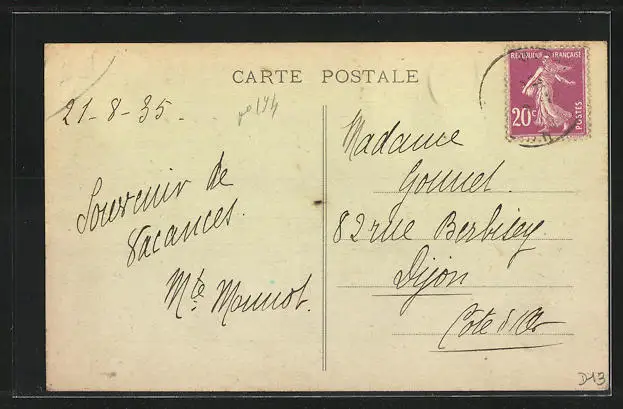 CARTE POSTALE
RÉPUBLIQUE FRANÇAISE
20c
POSTES
21-8-35.
Souvenir de
vacances.
Mte Monnot.
Madame
Gonnet.
82 rue Berbisey
Dijon
Côte d'Or
D13